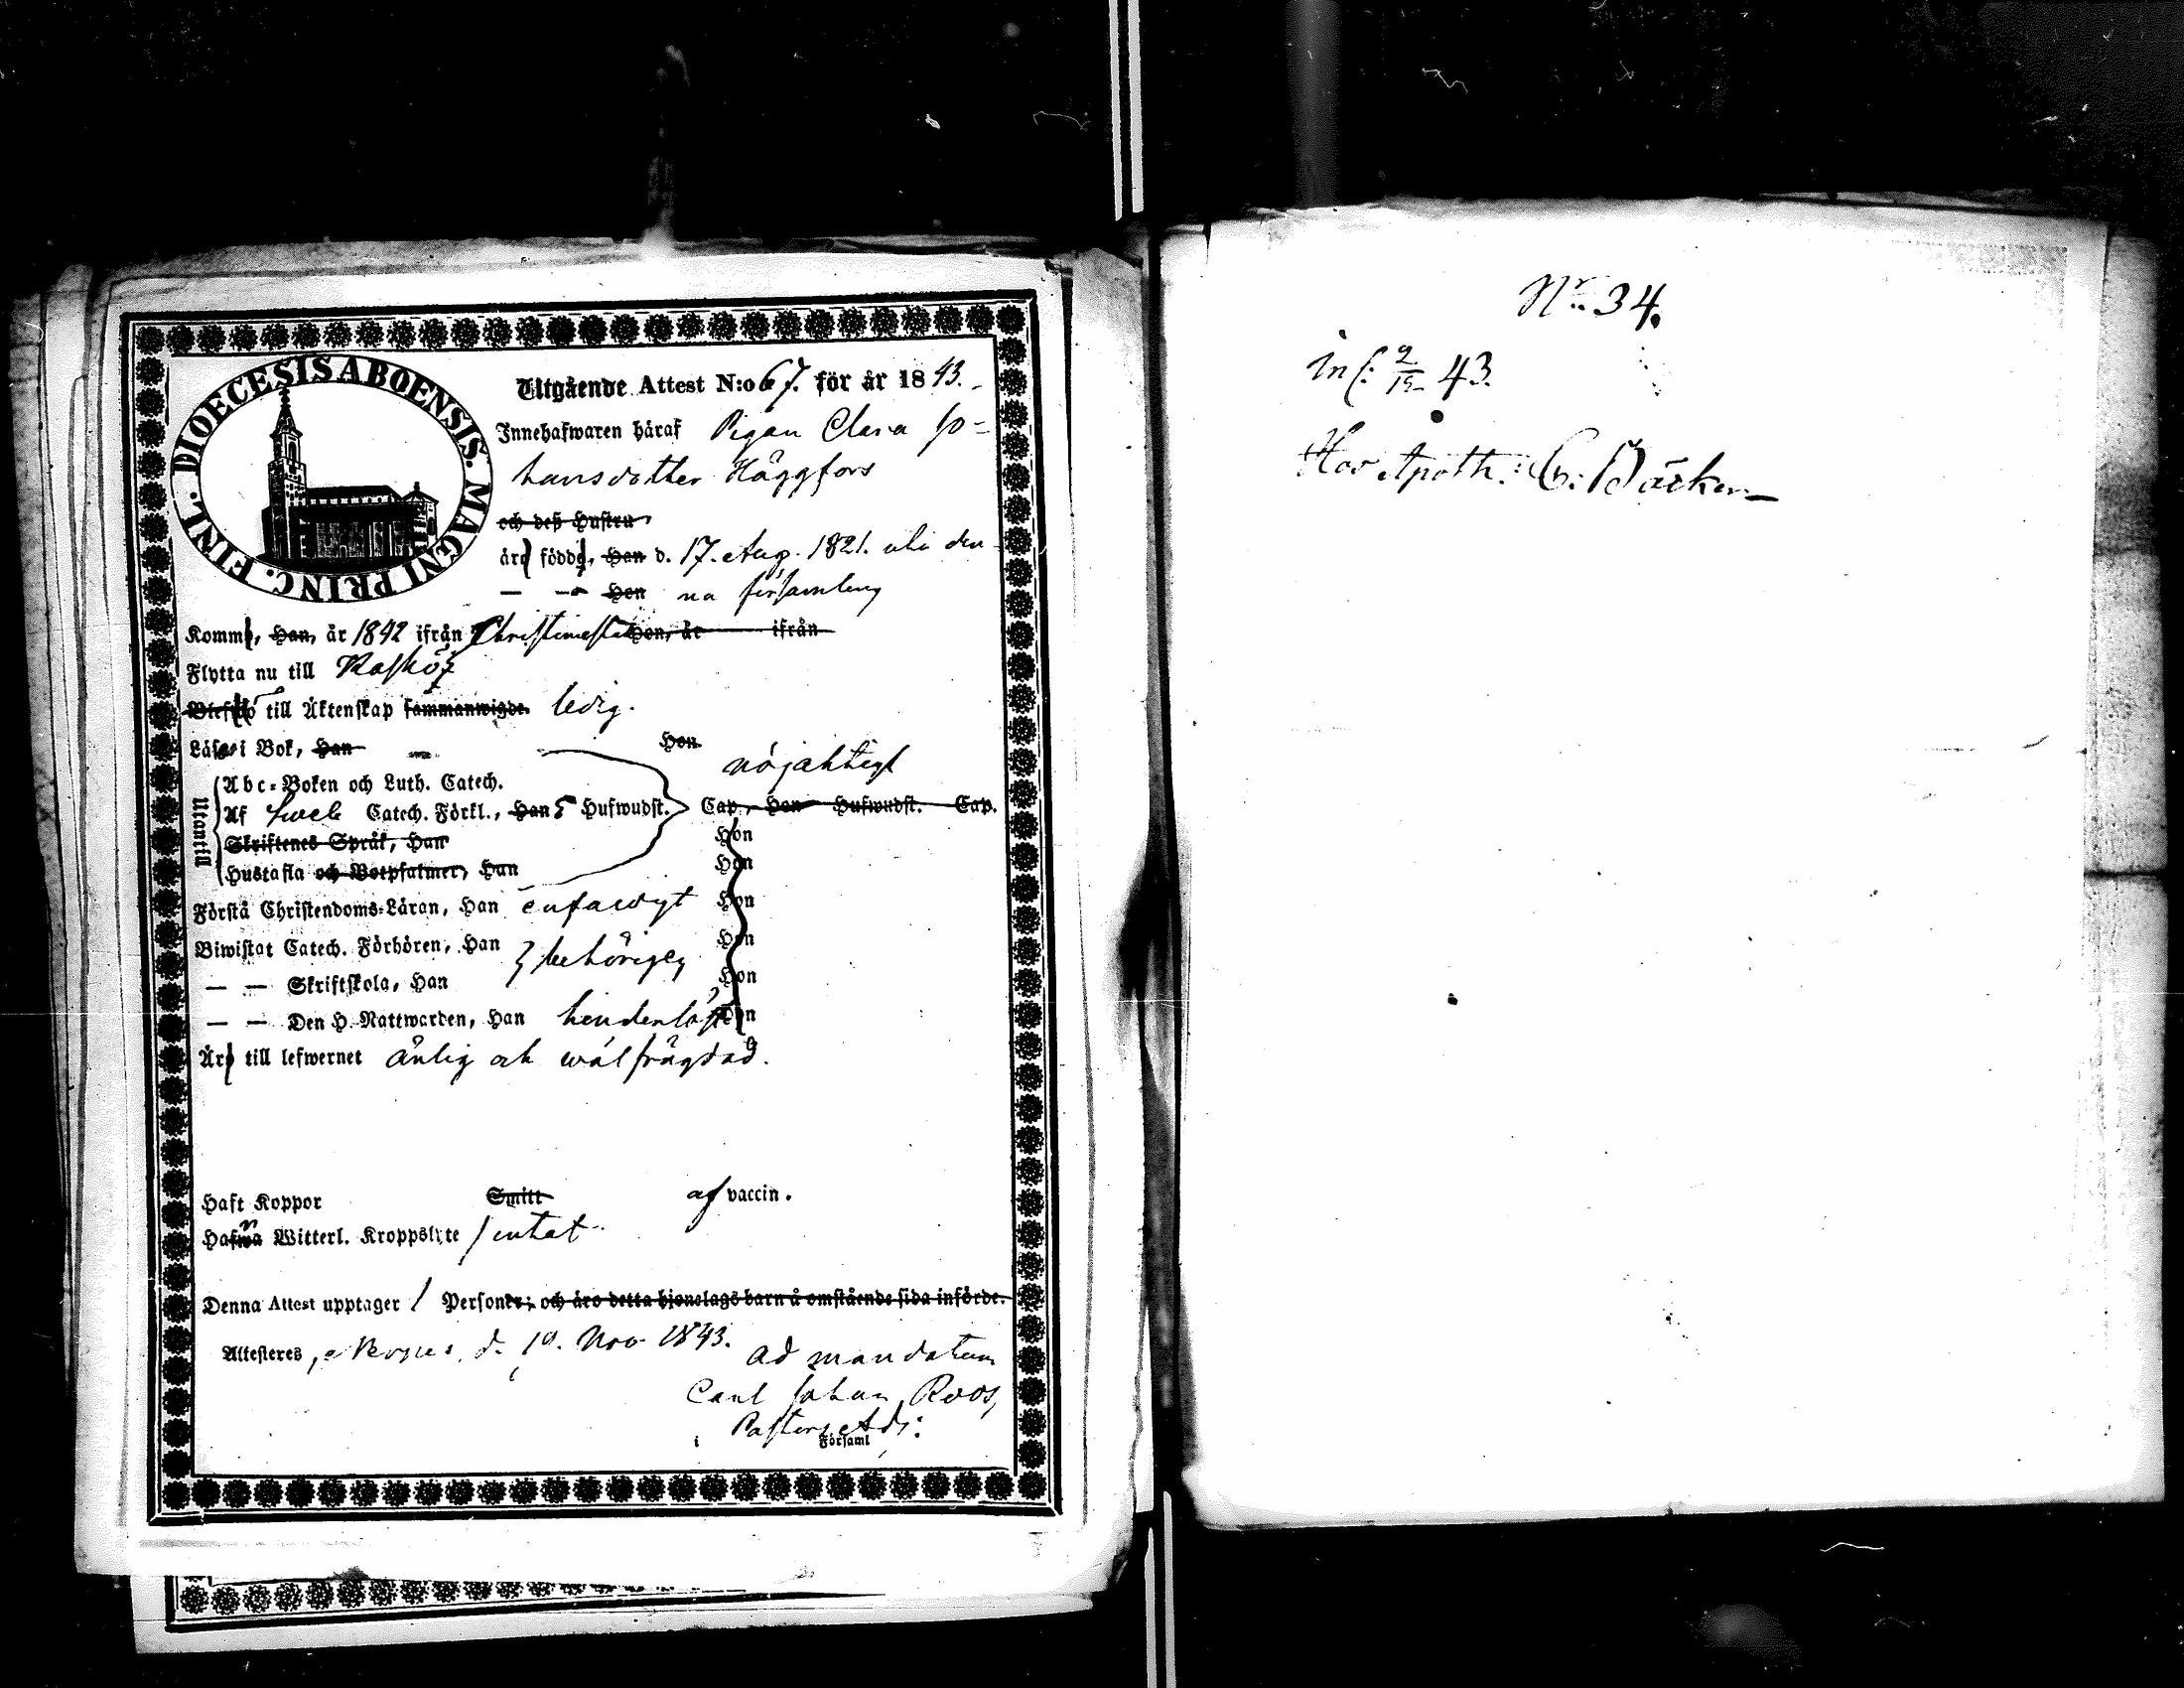 DIOECESIS ABOENSIS. MAGNI PRINC. FINL.
Utgående Attest N:o 67. för år 1843.
Innehafwaren häraf Pigan Clara Jo=
hansdotter Häggfors
och deß Hustru
äro födde, Han d. 17. Aug. 1821. uti den
— — Hon na församling
Komme, Han, år 1842 ifrån Christinestad Hon, år ifrån
Flytta nu till Kaskö
till Äktenskap sammanwigde. ledig.
Läsa i Bok, Han Hon nöjaktigt
Utantill
Abc=Boken och Luth. Catech.
Af Sweb Catech. Förkl., Han 5 Hufwudst. Cap., Hon Hufwudst. Cap.
Skriftenes Språk, Han Hon
Hustafla och Botpsalmer, Han Hon
Förstå Christendoms=Läran, Han enfaldigt Hon
Biwistat Catech. Förhören, Han behörigen Hon
— — Skriftskola, Han Hon
— — Den H. Nattwarden, Han hinderlös Hon
Äro till lefwernet ärlig och wäl frägdad.
Haft Koppor Smitt af vaccin.
Hafwa Witterl. Kroppslyte intet
Denna Attest upptager 1 Personer; och äro detta hjonelags barn å omstående sida införde.
Attesteres, d. 10. Nov 1843.
Ad mandatum
Carl Johan Roos,
Pastors Adj:
i Församl
Nr. 34.
inf: 9/12 43.
Hos Apoth: C: Bäcker